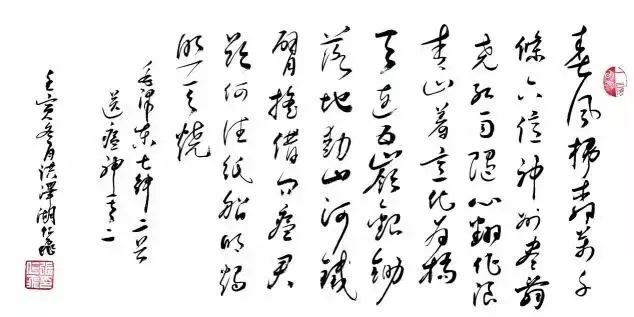 春风杨柳万千
條六億神州尽舜
尧红雨随心翻作浪
青山着意化为橋
天连五嶺銀锄
落地動山河鐵
臂摇借问瘟君
欲何往纸船明烛
照天烧
毛泽东七律二首
送瘟神其二
壬寅冬月洪澤湖仁